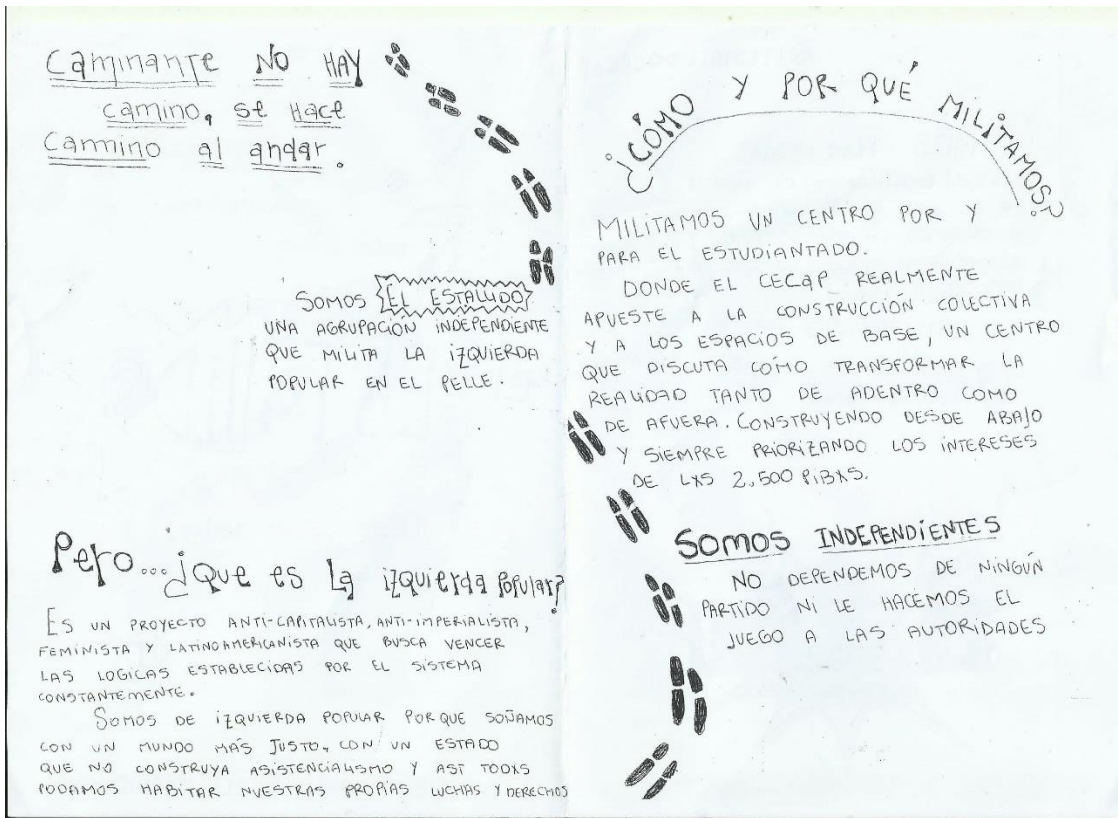 Caminante NO HAY
camino, se Hace
Cammino al andar.
SOMOS EL ESTALLIDO
UNA AGRUPACIÓN INDEPENDIENTE
QUE MILITA LA IZQUIERDA
POPULAR EN EL PELLE.
Pero...¿Que es La izquierda Popular?
ES UN PROYECTO ANTI-CAPITALISTA, ANTI-IMPERIALISTA,
FEMINISTA Y LATINOAMERICANISTA QUE BUSCA VENCER
LAS LOGICAS ESTABLECIDAS POR EL SISTEMA
CONSTANTEMENTE.
SOMOS DE IZQUIERDA POPULAR PORQUE SOÑAMOS
CON UN MUNDO MÁS JUSTO, CON UN ESTADO
QUE NO CONSTRUYA ASISTENCIALISMO Y ASÍ TODXS
PODAMOS HABITAR NUESTRAS PROPIAS LUCHAS Y DERECHOS
¿CÓMO Y POR QUÉ MILITAMOS?
MILITAMOS UN CENTRO POR Y
PARA EL ESTUDIANTADO.
DONDE EL CECaP REALMENTE
APUESTE A LA CONSTRUCCIÓN COLECTIVA
Y A LOS ESPACIOS DE BASE, UN CENTRO
QUE DISCUTA CÓMO TRANSFORMAR LA
REALIDAD TANTO DE ADENTRO COMO
DE AFUERA. CONSTRUYENDO DESDE ABAJO
Y SIEMPRE PRIORIZANDO LOS INTERESES
DE LXS 2,500 PIBXS.
SOMOS INDEPENDIENTES
NO DEPENDEMOS DE NINGÚN
PARTIDO NI LE HACEMOS EL
JUEGO A LAS AUTORIDADES